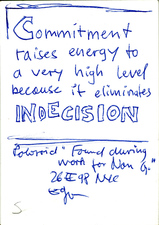 Commitment
raises energy to
a very high level
because it eliminates
INDECISION
"Polaroid" Found during
work for Nan G."
26 II 98 NYC